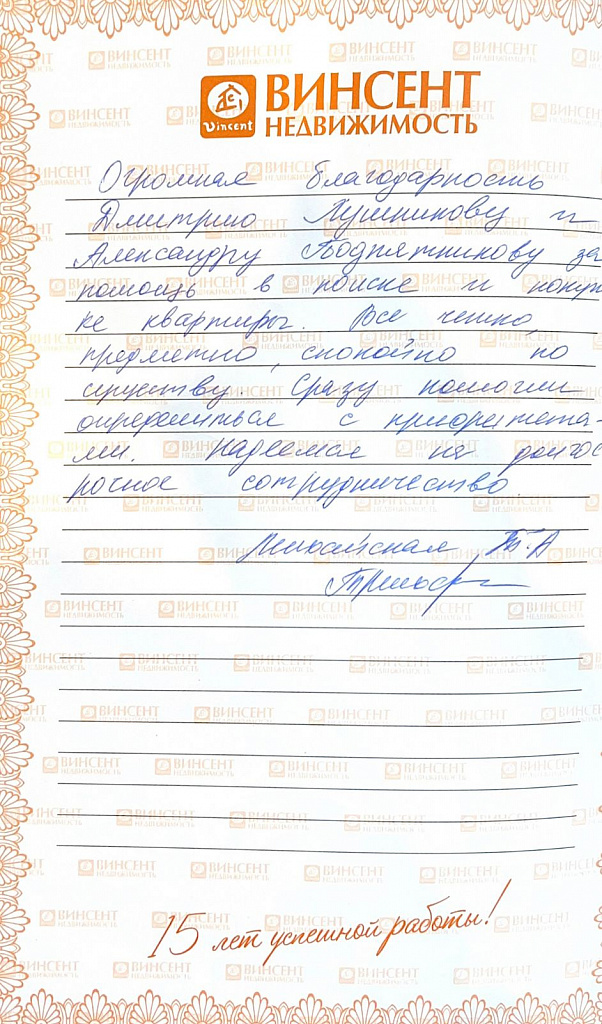 Vincent
ВИНСЕНТ
НЕДВИЖИМОСТЬ
Огромная благодарность
Дмитрию Лушникову и
Александру Подпятникову за
помощь в поиске и покуп
ке квартиры. Все четко,
предметно, спокойно по
существу. Сразу помогли
определиться с приоритета-
ми. Надеемся на долгос
рочное сотрудничество
Т.А
15 лет успешной работы!